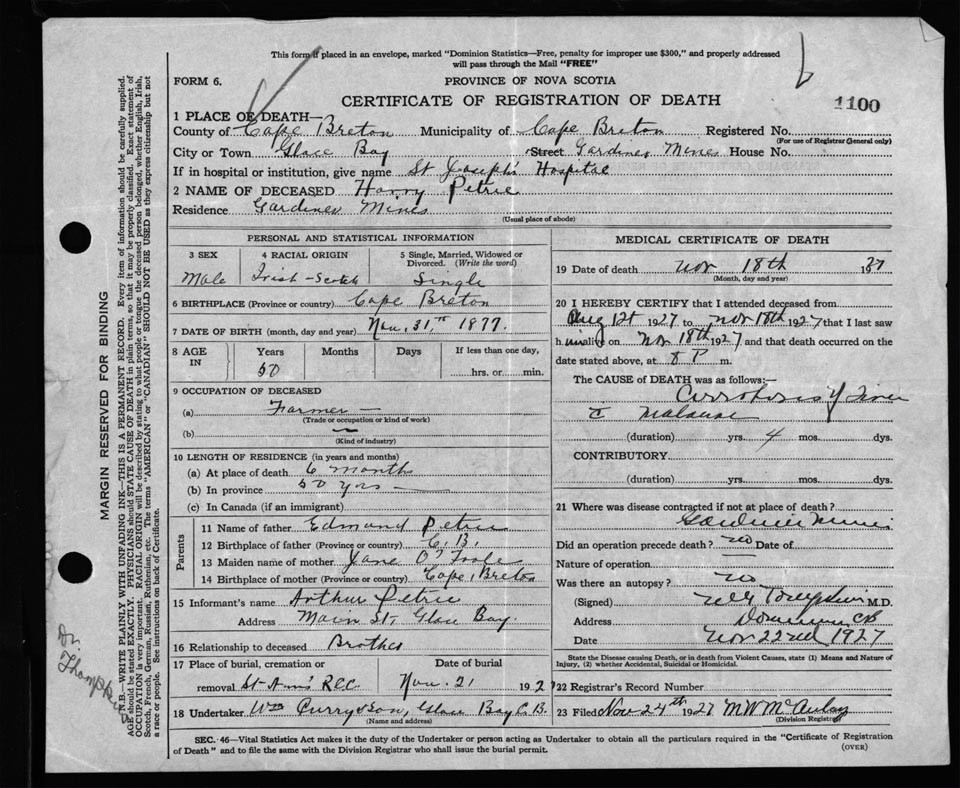 This form if placed in an envelope, marked "Dominion Statistics—Free, penalty for improper use $300," and properly addressed
will pass through the Mail "FREE"
FORM 6.
PROVINCE OF NOVA SCOTIA
CERTIFICATE OF REGISTRATION OF DEATH
1100
1 PLACE OF DEATH—
County of Cape Breton Municipality of Cape Breton Registered No.
(For use of Registrar General only)
City or Town Glace Bay Street Gardiner Mines House No.
If in hospital or institution, give name St Joseph's Hospital
2 NAME OF DECEASED Harry Petrie
Residence Gardiner Mines
(Usual place of abode)
PERSONAL AND STATISTICAL INFORMATION
3 SEX 4 RACIAL ORIGIN 5 Single, Married, Widowed or
Divorced. (Write the word)
Male Irish-Scotch Single
6 BIRTHPLACE (Province or country) Cape Breton
7 DATE OF BIRTH (month, day and year) Nov. 31, th 1877.
8 AGE IN Years Months Days If less than one day,
50 hrs. or min.
9 OCCUPATION OF DECEASED
(a) Farmer —
(Trade or occupation or kind of work)
(b) —
(Kind of industry)
10 LENGTH OF RESIDENCE (in years and months)
(a) At place of death 6 months
(b) In province 50 yrs —
(c) In Canada (if an immigrant)
Parents
11 Name of father Edmund Petrie
12 Birthplace of father (Province or country) C. B.
13 Maiden name of mother Jane O'Toole
14 Birthplace of mother (Province or country) Cape Breton
15 Informant's name Arthur Petrie
Address Main St, Glace Bay.
16 Relationship to deceased Brother
17 Place of burial, cremation or Date of burial
removal St. Ann's R.C.C. Nov. 21 1927
18 Undertaker Wm Curry & Son, Glace Bay C. B.
(Name and address)
MEDICAL CERTIFICATE OF DEATH
19 Date of death Nov 18th 1927
(Month, day and year)
20 I HEREBY CERTIFY that I attended deceased from
Aug 1927 to Nov 18th 1927 that I last saw
h im alive on Nov 18th 1927 and that death occurred on the
date stated above, at 8 P m.
The CAUSE OF DEATH was as follows:—
Cirrhosis of Liver
c
(duration) yrs. 4 mos. dys.
CONTRIBUTORY
(duration) yrs. mos. dys.
21 Where was disease contracted if not at place of death?
Gardiner Mines
Did an operation precede death? no Date of
Nature of operation —
Was there an autopsy? no
(Signed) Tompkins M.D.
Address Dominion CB
Date Nov 22nd 1927
State the Disease causing Death, or in death from Violent Causes, state (1) Means and Nature of
Injury, (2) whether Accidental, Suicidal or Homicidal.
22 Registrar's Record Number
23 Filed Nov 24th 1927 M W McAulay
(Division Registrar)
SEC. 46—Vital Statistics Act makes it the duty of the Undertaker or person acting as Undertaker to obtain all the particulars required in the "Certificate of Registration
of Death" and to file the same with the Division Registrar who shall issue the burial permit.
(OVER)
MARGIN RESERVED FOR BINDING
N.B.—WRITE PLAINLY WITH UNFADING INK—THIS IS A PERMANENT RECORD. Every item of information should be carefully supplied.
AGE should be stated EXACTLY. PHYSICIANS should STATE CAUSE OF DEATH in plain terms, so that it may be properly classified. Exact statement of
OCCUPATION is very important. RACIAL ORIGIN will be described by stating to what people or tongue the deceased person belonged, whether English, Irish,
Scotch, French, German, Russian, Ruthenian, etc. The terms "AMERICAN" or "CANADIAN" SHOULD NOT BE USED as they express citizenship but not
a race or people. See instructions on back of Certificate.
Dr.